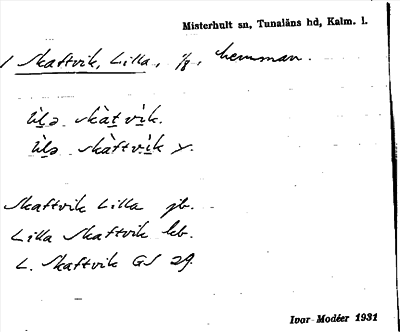 Misterhult sn, Tunaläns hd, Kalm. l.
Skaftvik, Lilla, 1/8, hemman.
skàt vìk.
skàftvìk y.
Skaftvik Lilla jb.
Lilla Skaftvik kb.
L. Skaftvik GS 29.
Ivar Modéer 1931